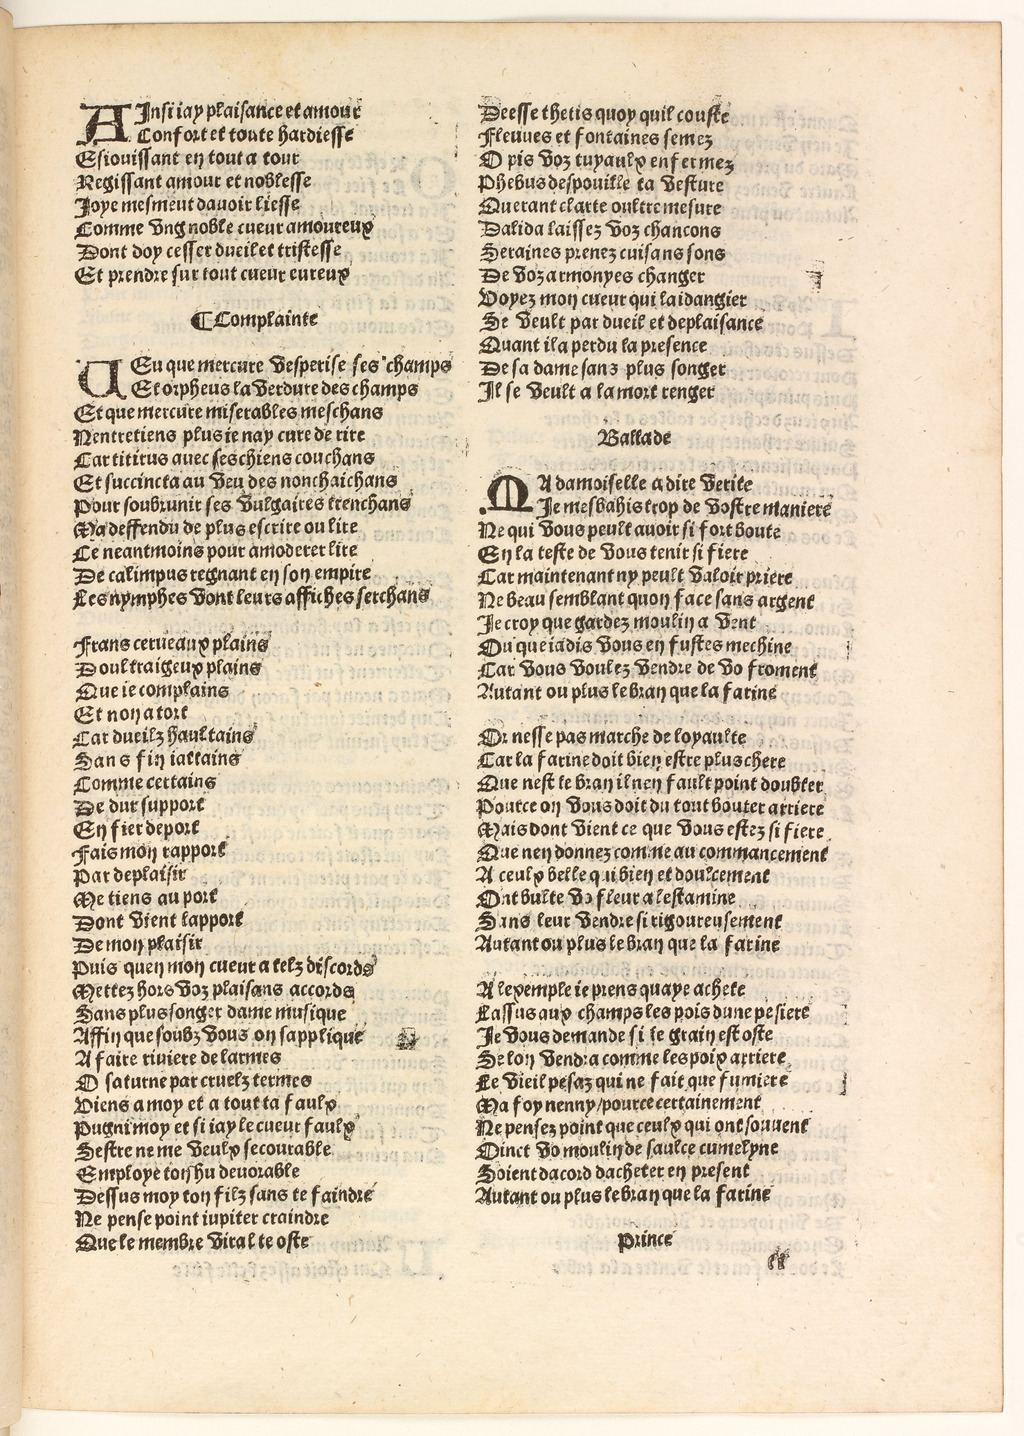 AInsi iay plaisance et amour
Confort et toute hardiesse
Esiouissant en tout a tour
Regissant amour et noblesse
Joye mesmeut dauoir liesse
Comme vng noble cueur amoureux
Dont doy cesser dueil et tristesse
Et prendre sur tout cueur eureux
¶Complainte
UEu que mercure vesperise ses champs
Et orpheus la verdure des champs
Et que mercure miserables meschans
Nentretiens plus ie nay cure de rire
Car titirus auec ses chiens couchans
Et succincta au veu des nonchaichans
Pour soubrunir ses vulgaires trenchans
Ma deffendu de plus escrire ou lire
Ce neantmoins pour amoderer lire
De calimpus regnant en son empire
Les nymphes vont leurs affiches serchans
Frans cerueaux plains
Doultraigeux plains
Que ie complains
Et non a tort
Car dueilz haultains
Sans fin iattains
Comme certains
De dur support
En fier deport
Fais mon rapport
Par deplaisir
Me tiens au port
Dont vient lapport
De mon plaisir
Puis quen mon cueur a telz discords
Mettez hors voz plaisans accords
Sans plus songer dame musique
Affin que soubz vous on sapplique
A faire riuiere de larmes
O saturne par cruelz termes
Viens a moy et a tout ta faulx
Pugni moy et si iay le cueur faulx
Sestre ne me veulx secourable
Employe ton hu deuorable
Dessus moy ton filz sans te faindre
Ne pense point iupiter craindre
Que le membre viral te oste
Deesse thetis quoy quil couste
Fleuues et fontaines semez
O pis voz tuyaulx enfermez
Phebus despouille ta vesture
Querant clarte oultre mesure
Dalida laissez voz chancons
Seraines prenez cuisans sons
De voz armonyes changer
Voyez mon cueur qui la dangier
Se veult par dueil et deplaisance
Quant il a perdu la presence
De sa dame sans plus songer
Il se veult a la mort renger
Ballade
MA damoiselle a dire verite
Je mesbahis trop de vostre maniere
Ne qui vous peult auoir si fort boute
En la teste de vous tenir si fiere
Car maintenant ny peult valoir priere
Ne beau semblant quon face sans argent
Je croy que gardez moulin a vent
Ou que iadis vous en fustes mechine
Car vous voulez vendre de vo froment
Autant ou plus le bran que la farine
Or nesse pas marche de loyaulte
Car la farine doit bien estre plus chere
Que nest le bran il nen fault point doubter
Pource on vous doit du tout bouter arriere
Mais dont vient ce que vous estez si fiere
Que nen donnez comme au commancement
A ceulx belle qui bien et doulcement
Ont bulte vo fleur a lestamine
Sans leur vendre si rigoureusement
Autant ou plus le bran que la farine
A lexemple ie prens quaye achete
Lassus aux champs les pois dune pesiere
Je vous demande si le grain est oste
Se lon vendra comme les poix arriere
Le vieil pesaz qui ne fait que fumiere
Ma foy nenny/pource certainement
Ne pensez point que ceulx qui ont souuent
Oinct vo moulin de saulce cumelyne
Soient dacord dacheter en present
Autant ou plus le bran que la farine
Prince